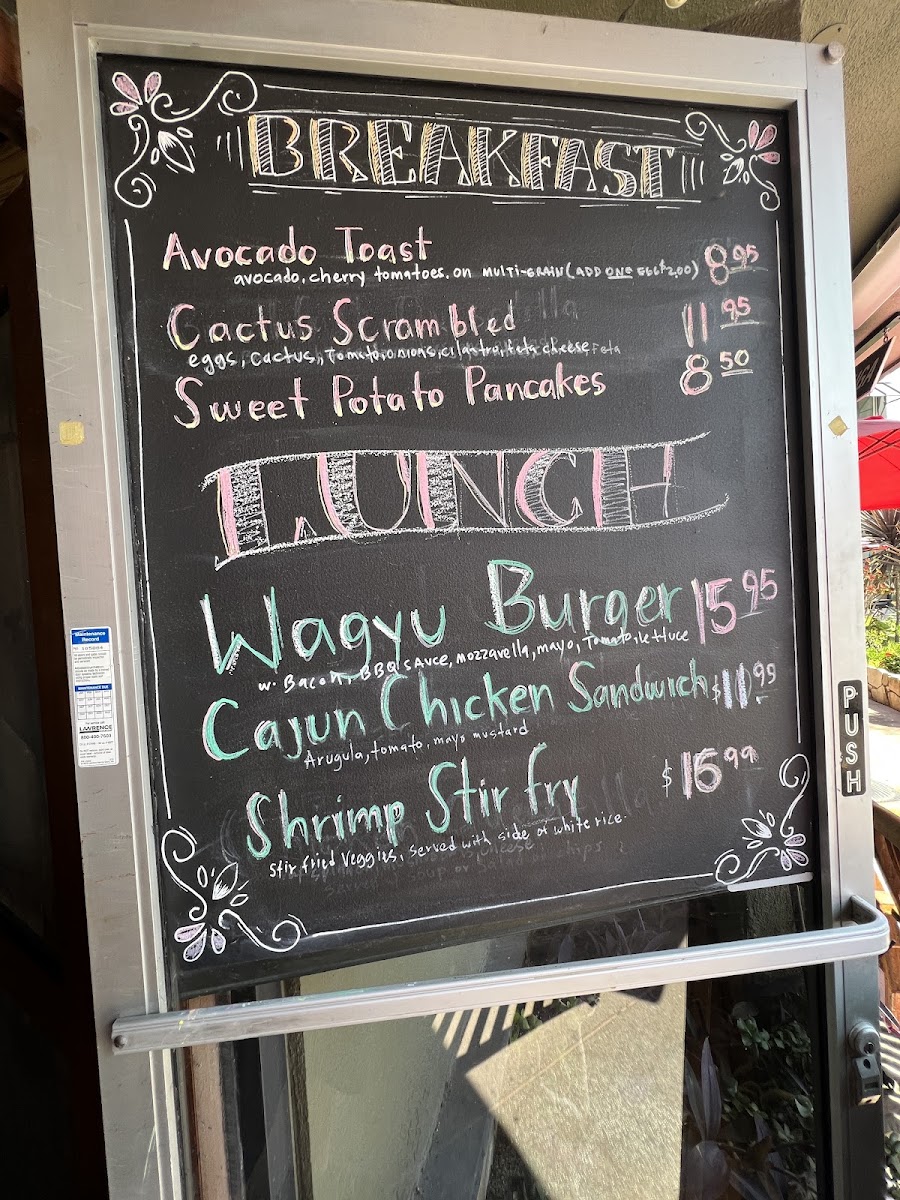 BREAKFAST
Avocado Toast 8 95
avocado, cherry tomatoes, on MULTI-GRAIN (ADD ONE EGG $2.00)
Cactus Scrambled 11 95
eggs, cactus, Tomato, onions, cilantro, feta cheese Feta
Sweet Potato Pancakes 8 50
LUNCH
Wagyu Burger 15 95
w. Bacon, BBQ sAuce, mozzavella, mayo, Tomato, lettuce
Cajun Chicken Sandwich $11 99
Arugula, tomato, mayo mustard
Shrimp Stir fry $16 99
stir fried Veggies, served with side of white rice.
served soup or salad chips
PUSH
Maintenance
Record
MAINTENANCE DUE
LAWRENCE